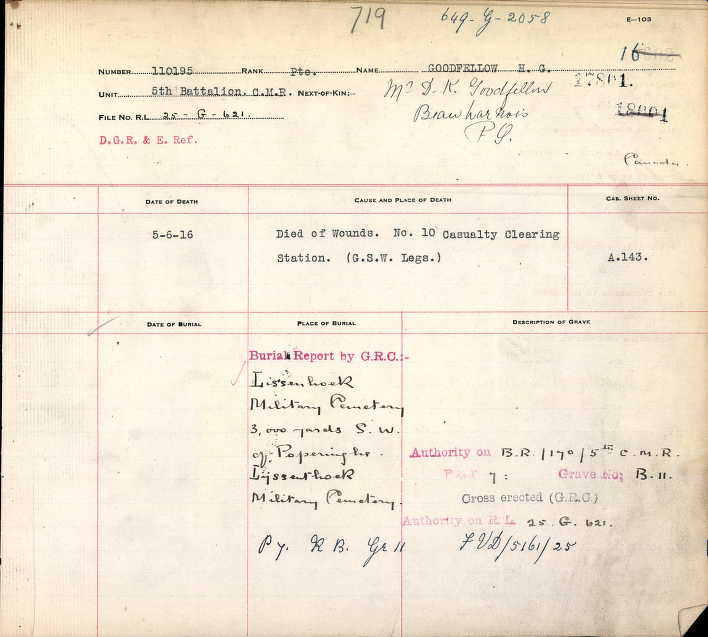 719
649-G-2058
E-103
16
NUMBER 110195 RANK Pte. NAME GOODFELLOW H. G.
17801.
UNIT 5th Battalion. C.M.R. NEXT-OF-KIN: Mr D. K. Goodfellow
FILE NO. R.L. 25 - G - 621.
Beauharnois
18001
P Q.
D.G.R. & E. Ref.
Canada.
DATE OF DEATH CAUSE AND PLACE OF DEATH CAS. SHEET NO.
5-6-16 Died of Wounds. No. 10 Casualty Clearing
Station. (G.S.W. Legs.) A.143.
DATE OF BURIAL PLACE OF BURIAL DESCRIPTION OF GRAVE
Burial Report by G.R.C.:-
Lissenhoek
Military Cemetery
3,000 yards S. W.
of Poperinghe.
Lijssenthoek
Military Cemetery.
Authority on B.R./170/5th C.M.R.
7: Grave No; B-11.
Cross erected (G.R.C.)
Authority on R.L. 25. G. 621.
P 7. R B. Gr 11
FVD/5161/25